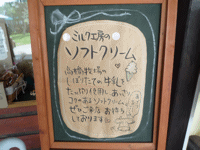 ミルク工房の
ソフトクリーム
高橋牧場の
しぼりたての牛乳を
たっぷり使用し、あっさり
コクのあるソフトクリーム
ぜひご来店お待ち
しております